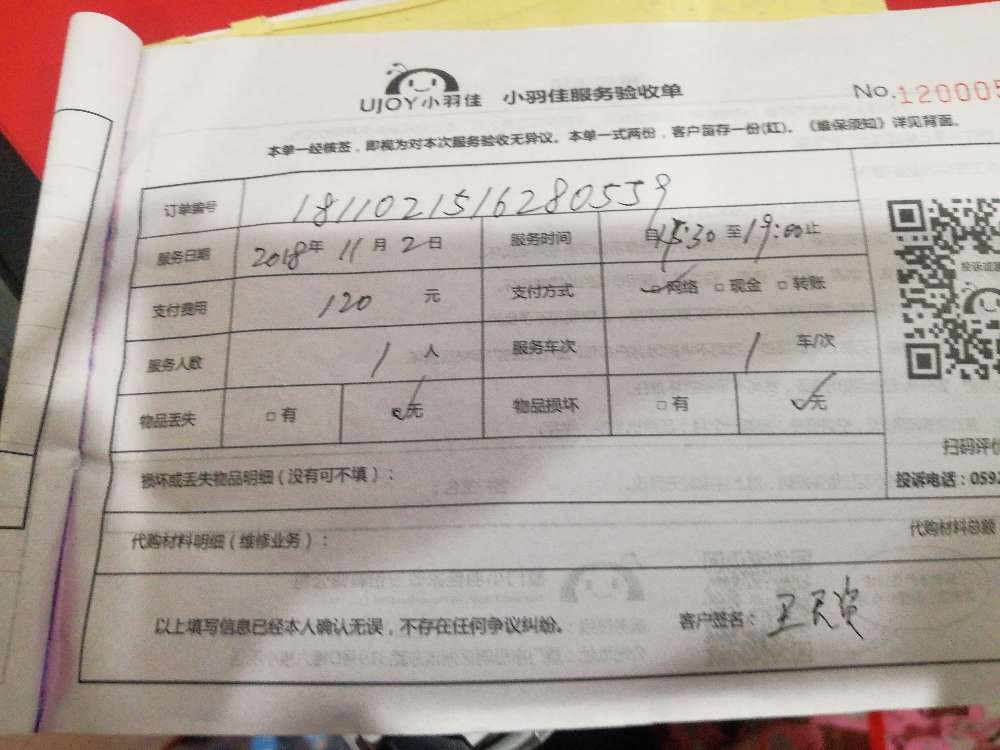 UJOY小羽佳 小羽佳服务验收单 No.120005
本单一经核签，即视为对本次服务验收无异议。本单一式两份，客户留存一份(红)。《维保须知》详见背面。
订单编号 1811021516280559
服务日期 2018年 11月 2日 服务时间 自15:30至19:00止
支付费用 120 元 支付方式 □网络 □现金 □转账
服务人数 1 人 服务车次 1 车/次
物品丢失 □有 □无 物品损坏 □有 □无
损坏或丢失物品明细（没有可不填）：
扫码评价
投诉电话：0592
代购材料明细（维修业务）： 代购材料总额
以上填写信息已经本人确认无误，不存在任何争议纠纷。 客户签名：